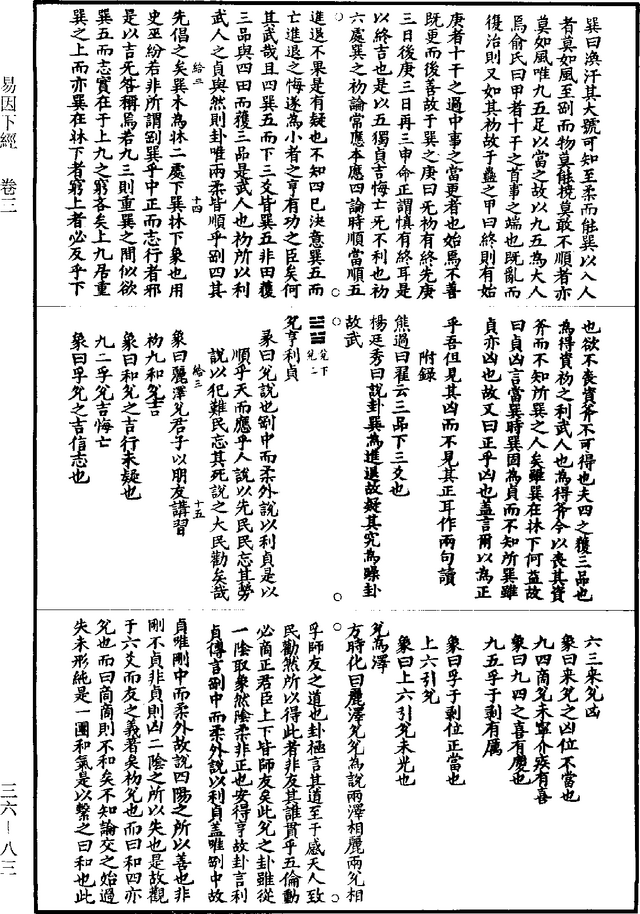 巽曰渙汗其大號可知至柔而能巽以入人
者莫如風至剛而物莫能撓莫敢不順者亦
莫如風唯九五足以當之故以九五為大人
焉俞氏曰甲者十干之首事之端也既亂而
復治則又如其初故于蠱之甲曰終則有始
庚者十干之過中事之當更者也始焉不善
既更而後善故于巽之庚曰无初有終先庚
三日後庚三日再三申命正謂慎有終耳是
以終吉也是以五獨貞吉悔亡无不利也初
六處巽之初論當應本應四論時順當順五
進退不果是有疑也不知四已決意巽五而
亡進退之悔遂為小者之亨有功之臣矣何
其武哉且四巽五而下三爻皆巽五非田獲
三品與四田而獲三品是武人也初所以利
武人之貞與然則卦唯兩柔皆順乎剛四其
先倡之矣巽木為牀二處下巽牀下象也用
史巫紛若非所謂剛巽乎中正而志行者邪
是以吉无咎稱焉若九三則重巽之間似欲
巽五而志實在于上九之窮吝矣上九居重
巽之上而亦巽在牀下者窮上者必反乎下
給三
十四
也欲不喪資斧不可得也夫四之獲三品也
為得資初之利武人也為得斧今以喪其資
斧而不知所巽之人矣雖巽在牀下何益故
曰貞凶言當巽時巽固為貞而不知所巽雖
貞亦凶也故又曰正乎凶也蓋言爾以為正
乎吾但見其凶而不見其正耳作兩句讀
附錄
熊過曰翟云三品下三爻也
楊廷秀曰說卦巽為進退故疑其究為躁卦
故武
兌下
兌二
兌亨利貞
彖曰兌說也剛中而柔外說以利貞是以
順乎天而應乎人說以先民民忘其勞
說以犯難民忘其死說之大民勸矣哉
給三
十五
象曰麗澤兌君子以朋友講習
初九和兌吉
象曰和兌之吉行未疑也
九二孚兌吉悔亡
象曰孚兌之吉信志也
六三來兌凶
象曰來兌之凶位不當也
九四商兌未寧介疾有喜
象曰九四之喜有慶也
九五孚于剝有厲
象曰孚于剝位正當也
上六引兌
象曰上六引兌未光也
兌為澤
方時化曰麗澤兌兌為說兩澤相麗兩兌相
孚師友之道也卦極言其道至于感天人致
民勸然所以得此者非友其誰貫乎五倫動
必商正君臣上下皆師友矣此兌之卦雖從
一陰取象然陰柔非正也安得亨故卦言利
貞傳言剛中而柔外說以利貞蓋唯剛中故
貞唯剛中而柔外故說四陽之所以善也非
剛不貞非貞則凶二陰之所以失也是故觀
于六爻而友之義著矣初兌也而曰和四亦
兌也而曰商商則不和矣不知論交之始過
失未形純是一團和氣是以繫之曰和也此
易因下經　卷三
三六－八三